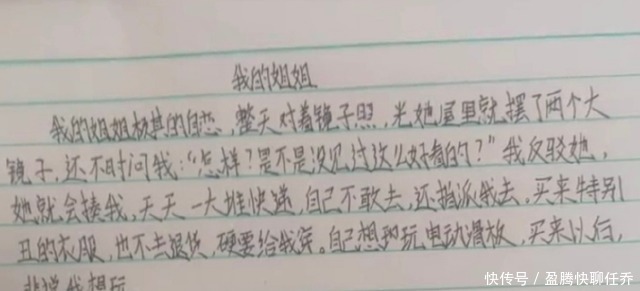 我的姐姐
我的姐姐极其的自恋,整天对着镜子照,光她屋里就摆了两个大
镜子,还不时问我:“怎样?是不是没见过这么好看的?”我反驳她,
她就会揍我,天天一大堆快递,自己不敢去,还指派我去,买来特别
丑的衣服,也不去退货,硬要给我穿。自己想玩电动滑板,买来以后,
非说我想玩
快传号/盈腾快聊任乔